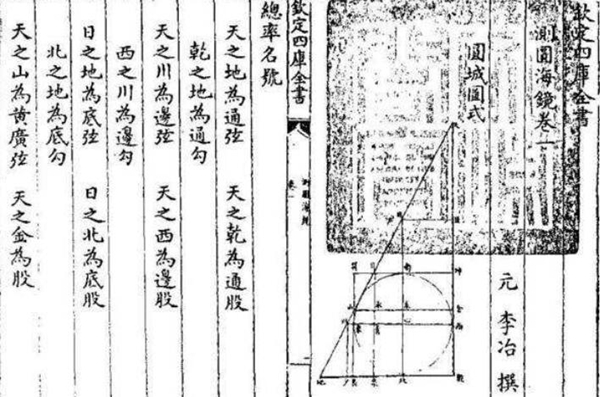 欽定四庫全書
測圓海鏡卷一
元 李冶 撰
圓城圖式
欽定四庫全書
卷一
總率名號
天之地為通弦 天之乾為通股
乾之地為通勾
天之川為邊弦 天之西為邊股
西之川為邊勾
日之地為底弦 日之北為底股
北之地為底勾
天之山為黄廣弦 天之金為股